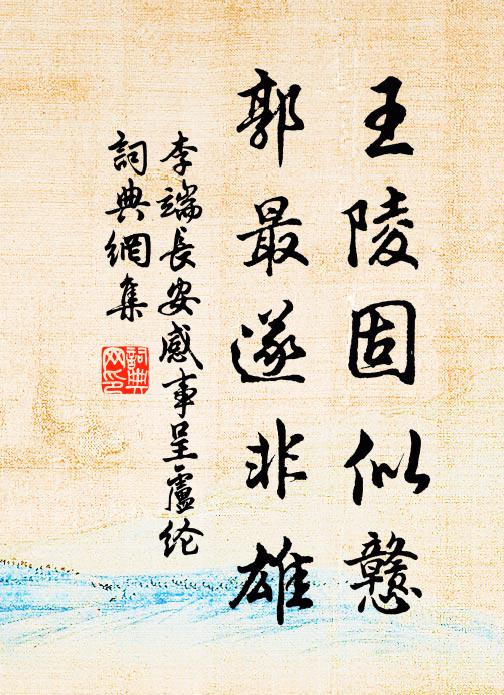 王陵固似戇
郭最遂非雄
李端長安感事呈盧纶
詞典網集
詞典網印